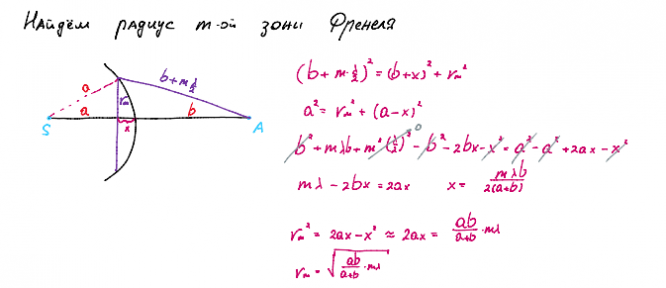 Найдём радиус m-ой зоны Френеля
a
b+m λ/2
r_m
a
b
x
S
A
(b+m·λ/2)² = (b+x)² + r_m²
a² = r_m² + (a-x)²
b² + mλb + m²(λ/2)² - b² - 2bx - x² = a² - a² + 2ax - x²
mλ - 2bx = 2ax x = mλb / 2(a+b)
r_m² = 2ax - x² ≈ 2ax = ab/(a+b) · mλ
r_m = √(ab/(a+b) · mλ)